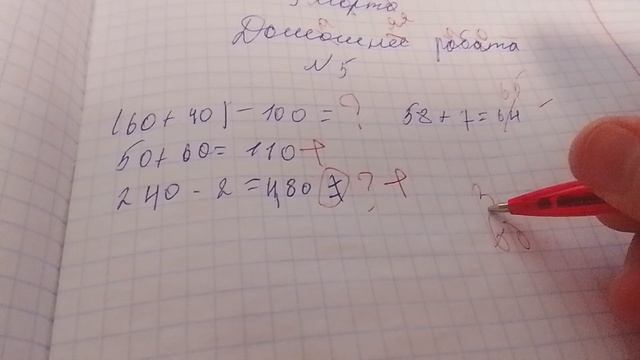 Домошнее робота
N 5
(60 + 40) - 100 = ? 58 + 7 = 64
50 + 60 = 110
240 - 2 = 480 ?